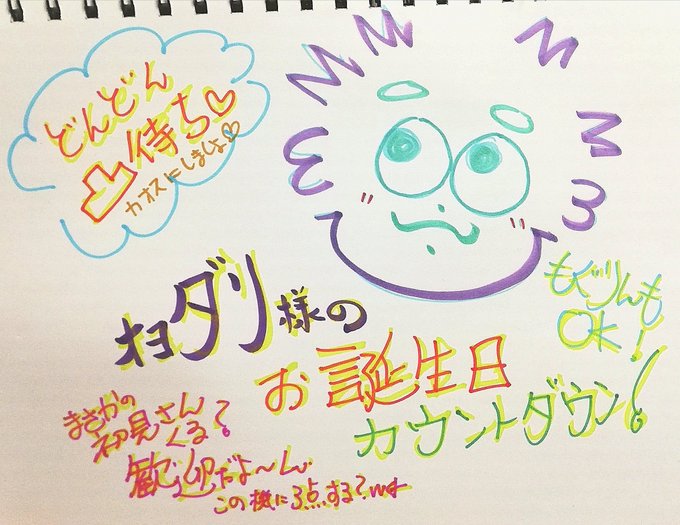 どんどん
凸待ち♡
カオスにしましょ♡
オヨダリ様の
お誕生日
カウントダウン！
もぐりんも
OK！
まさかの
初見さん
くる？
歓迎だよ〜ん
この機に3点する？ww